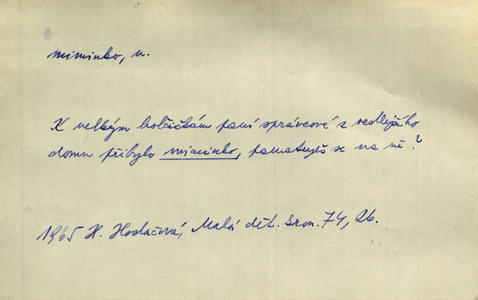 miminko, n.
K velkým holčičkám paní správcové z vedlejšího
domu přibylo miminko, pamatuješ se na ně?
1965 H. Hodačová, Malá dět. 74, 26.